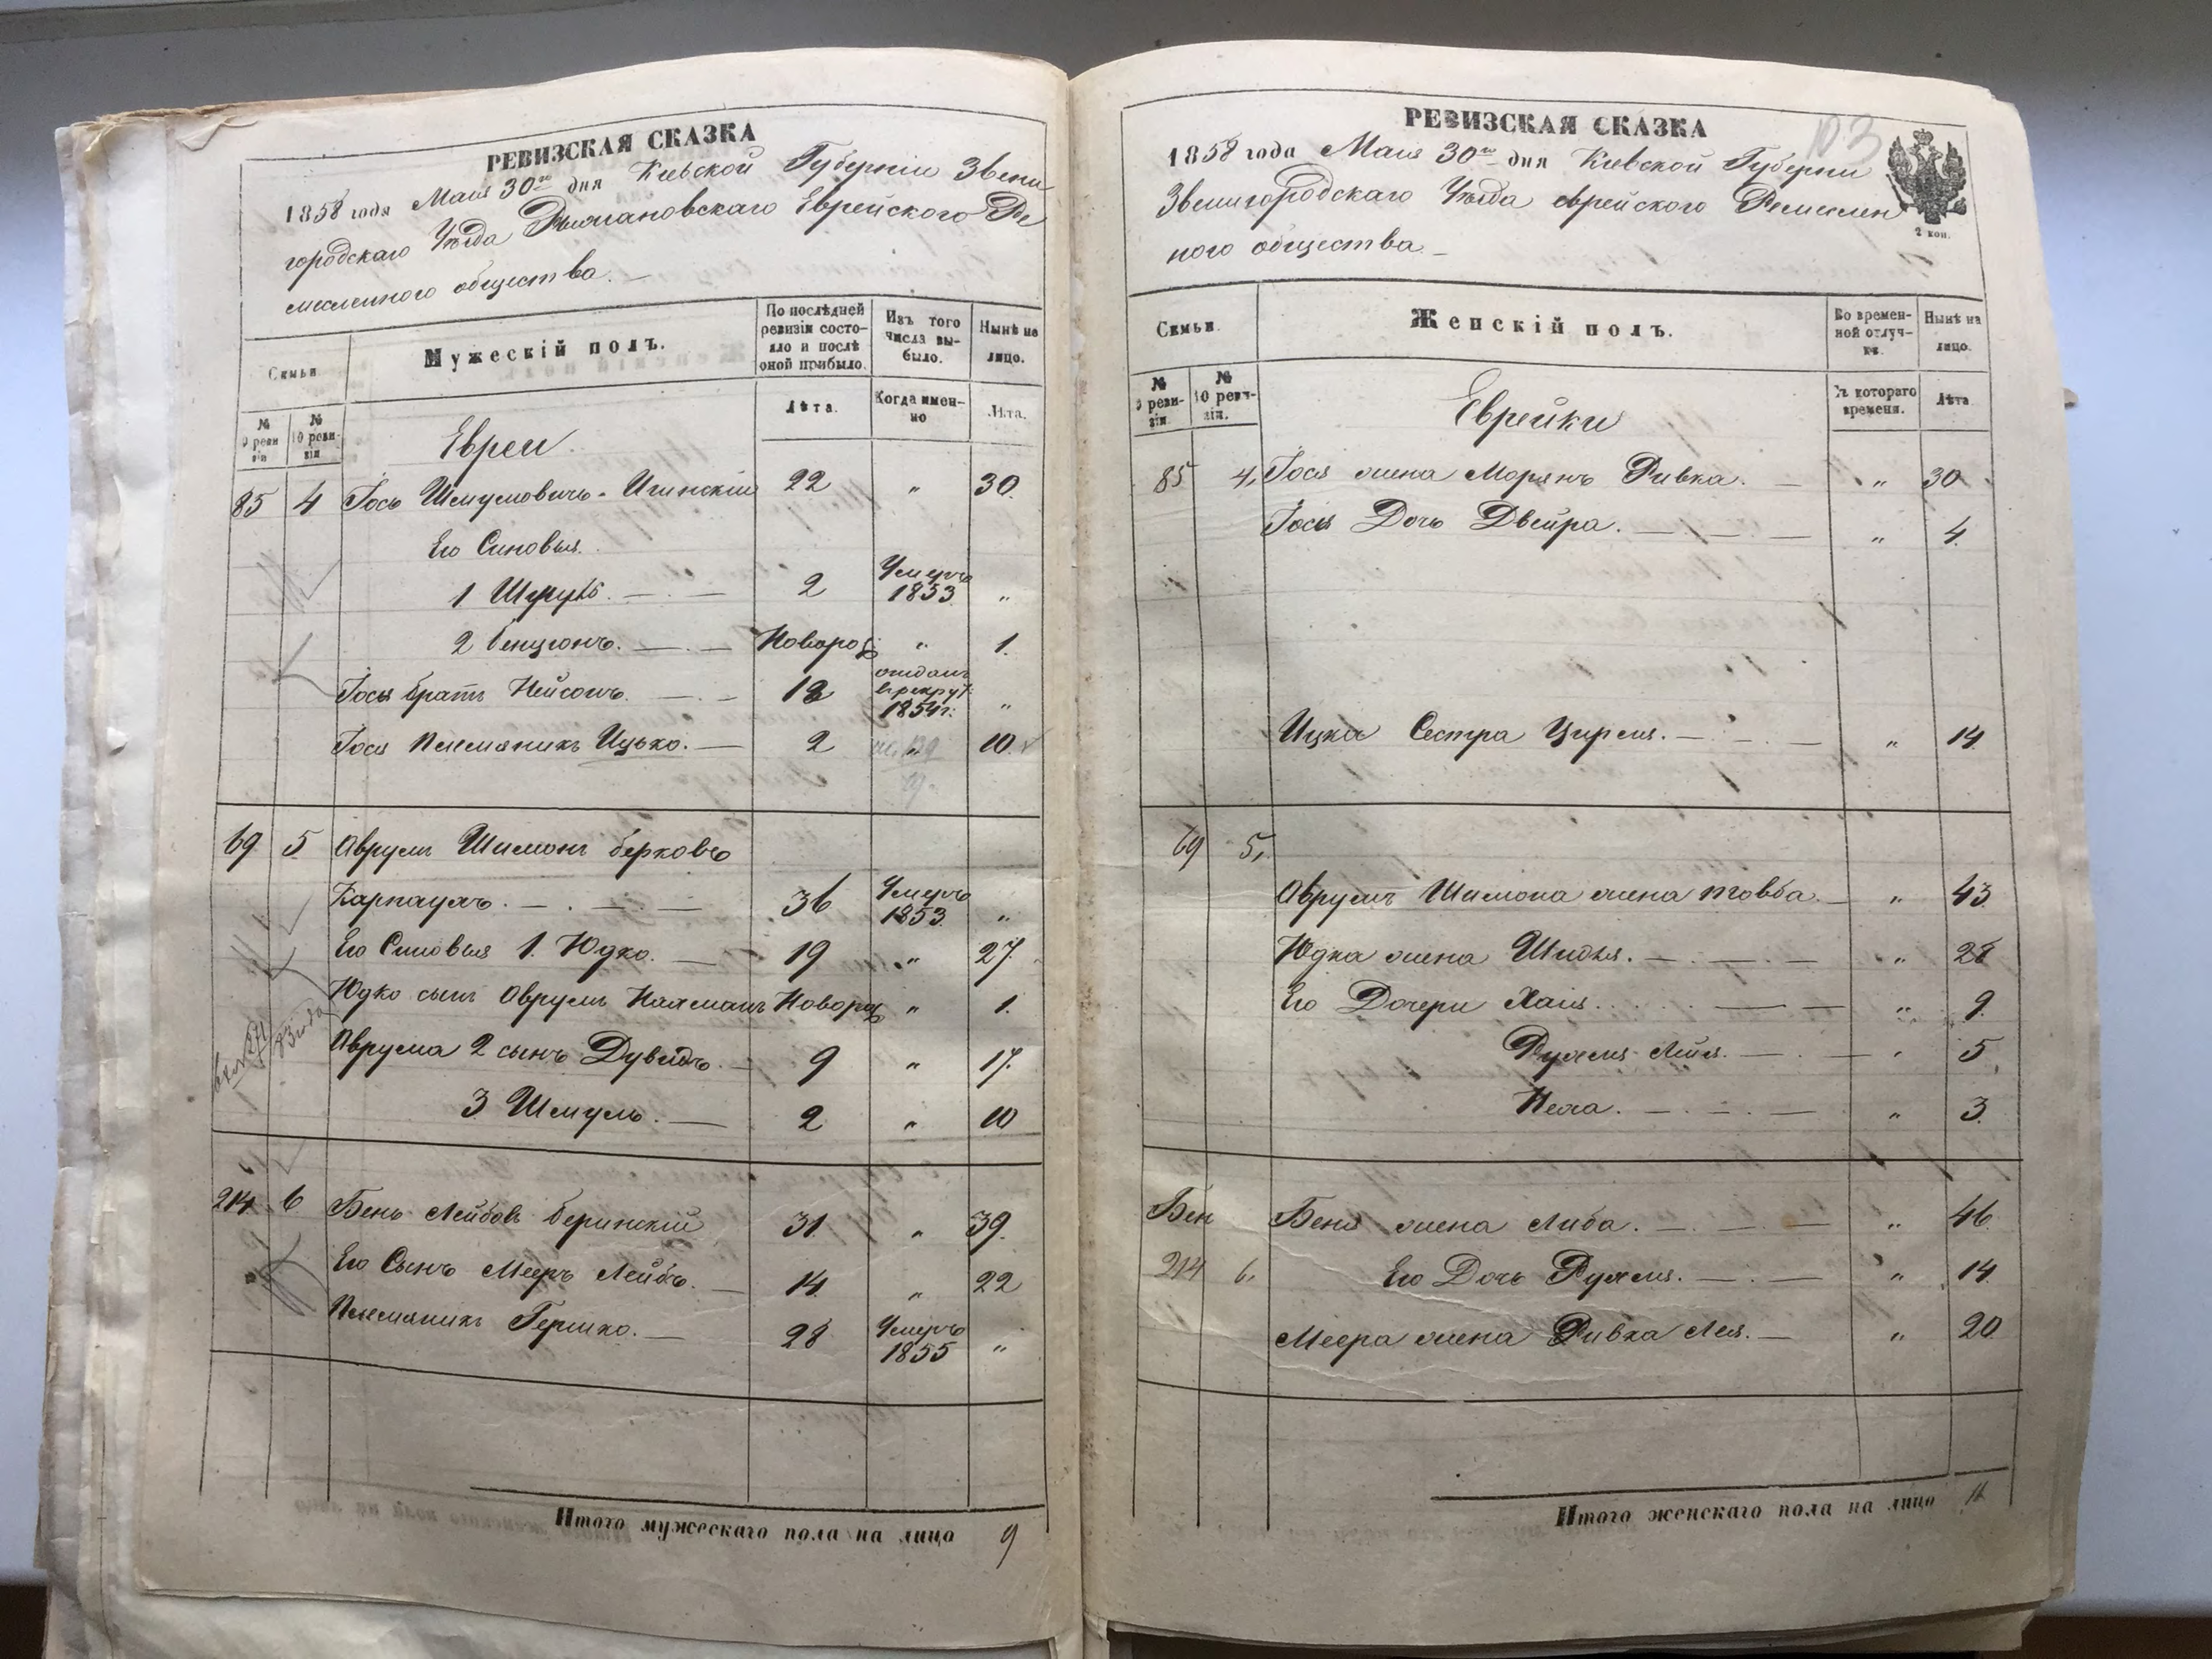 РЕВИЗСКАЯ СКАЗКА
1858 года Маія 30го дня Кіевской Губерніи Звени
городскаго Уѣзда Рыжановскаго Еврейского Ре
месленного общества. —
Семьи
№ 9 ревизіи
№ 10 ревизіи
Мужескій полъ.
По послѣдней ревизіи состояло и послѣ оной прибыло.
Изъ того числа выбыло.
Нынѣ на лицо.
Лѣта.
Когда именно
Лѣта.
Евреи
85 4 Іось Шмулевичъ 22 " 30.
Его Синовья.
1 2 Умеръ 1853. "
2 Бенціонъ. Новорож " 1.
Іося братъ Нейсонъ. 18 отданъ в рекрут. 1854 г: "
Іося Племяникъ Ицько. 2 " 10.
69 5 Аврумъ Шимонъ Берковъ
Карнаухъ. 36 Умеръ 1853. "
Его Синовья 1. Юдко. 19 " 27.
Юдко сынъ Аврумъ Нахманъ Новорож " 1.
Аврума 2 сынъ Дувидъ. 9 " 17.
3 Шмуль. 2 " 10
214 6 Бень Лейбовъ Беринскій 31. " 39.
Его Сынъ Мееръ Лейбъ. 14 " 22
Племяникъ Гершко. 28 Умеръ 1855 "
Итого мужескаго пола на лицо 9
РЕВИЗСКАЯ СКАЗКА
103
1858 года Маія 30го дня Кіевской Губерни
Звенигородскаго Уѣзда еврейского Ремеслен
ного общества. —
2 коп.
Семьи.
№ 9 ревизіи.
№ 10 ревизіи.
Женскій полъ.
Во временной отлучкѣ.
Нынѣ на лицо.
Съ котораго времени.
Лѣта
Еврейки
85 4, Іося жена Марьянъ Ривка. " 30
Іося Дочь Двейра. " 4.
Ицка Сестра Цирля. " 14.
69 5,
Аврумъ Шимона жена Товба. " 43
Юдка жена Шндля. " 28
Его Дочери Хаія. " 9.
Рухля Лея. " 5
Неха. " 3.
Бен Беня жена Либа. " 46
214 6, Его Дочь Рухля. " 14.
Меера жена Ривка Лея. " 20
Итого женскаго пола на лицо 11